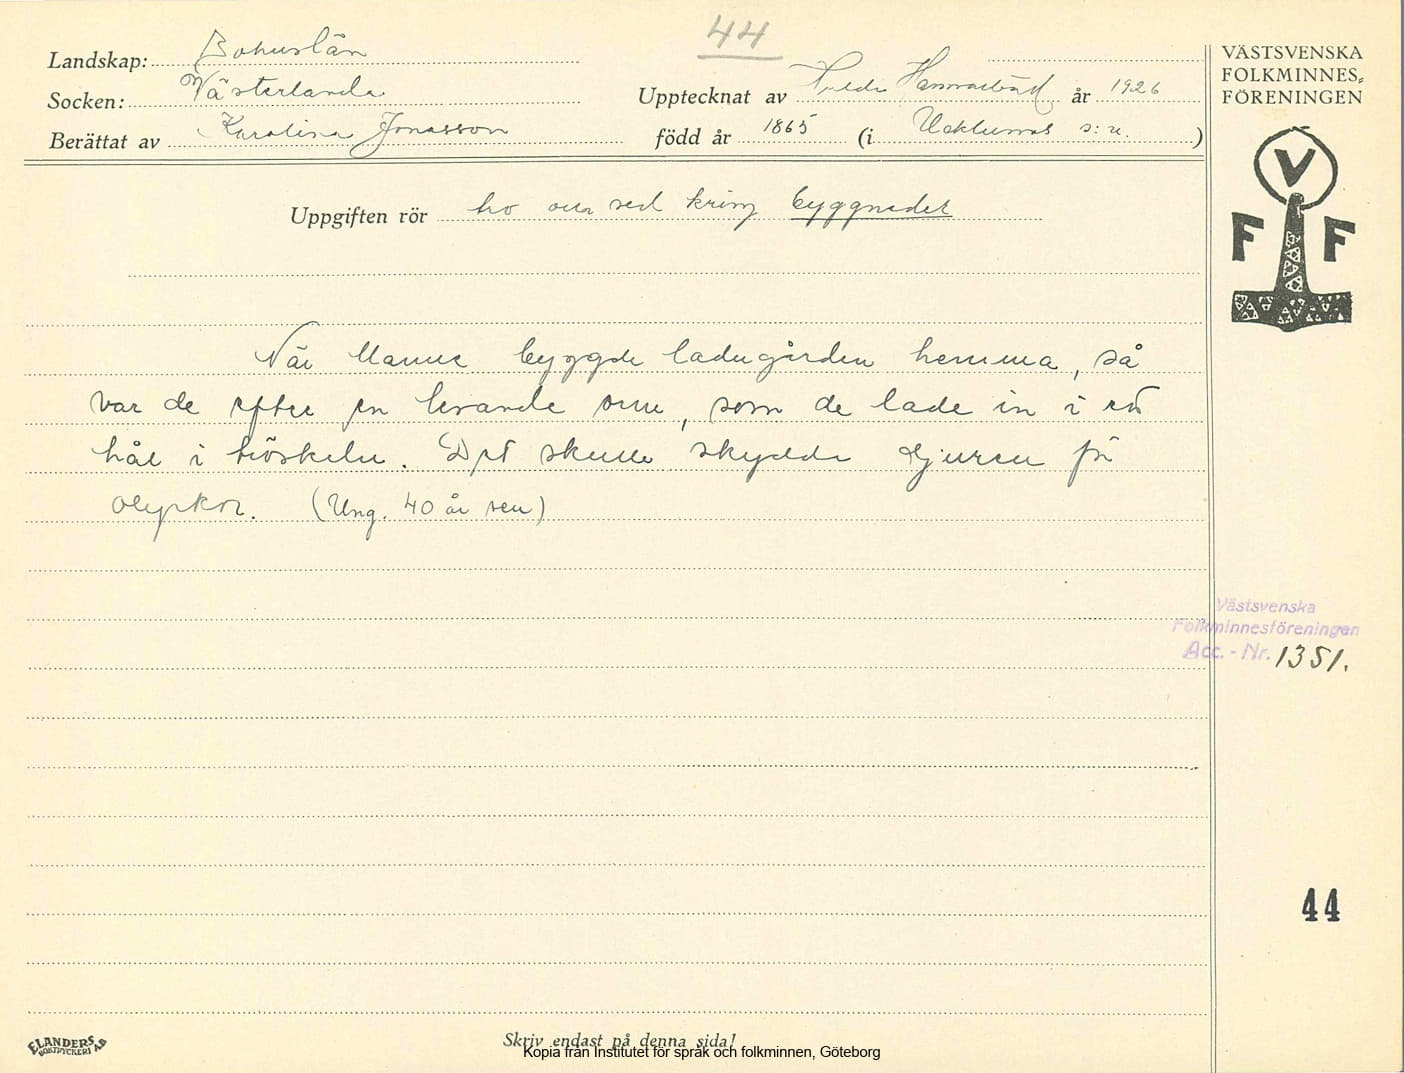 44
Landskap: Bohuslän
Socken: Västerlanda
Berättat av Karolina Jonasson
Upptecknat av Hilda år 1926
född år 1865 (i Ucklums s:n.)
VÄSTSVENSKA
FOLKMINNES-
FÖRENINGEN
V
F F
Uppgiften rör tro och sed kring byggnader
När Manne byggde ladugården hemma, så
var de efter en levande orm, som de lade in i ett
hål i tröskeln. Det skulle skydda djuren för
olyckor. (Ung. 40 år sen)
Västsvenska
Folkminnesföreningen
Acc. - Nr. 1351.
44
ELANDERS
BOKTRYCKERI AB
Skriv endast på denna sida!
Kopia från Institutet för språk och folkminnen, Göteborg